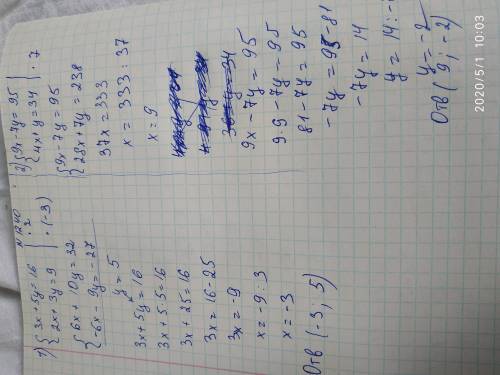 N1240
1) { 3x + 5y = 16 | · 2
{ 2x + 3y = 9 | · (-3)
{ 6x + 10y = 32
{ -6x - 9y = -27
y = 5
3x + 5y = 16
3x + 5·5 = 16
3x + 25 = 16
3x = 16 - 25
3x = -9
x = -9 : 3
x = -3
Отв (-3; 5)
2) { 9x - 7y = 95
{ 4x + y = 34 | · 7
{ 9x - 7y = 95
{ 28x + 7y = 238
37x = 333
x = 333 : 37
x = 9
9x - 7y = 95
9·9 - 7y = 95
81 - 7y = 95
-7y = 95 - 81
-7y = 14
y = 14 : -
y = -2
Отв (9; -2)
2020/5/1 10:03